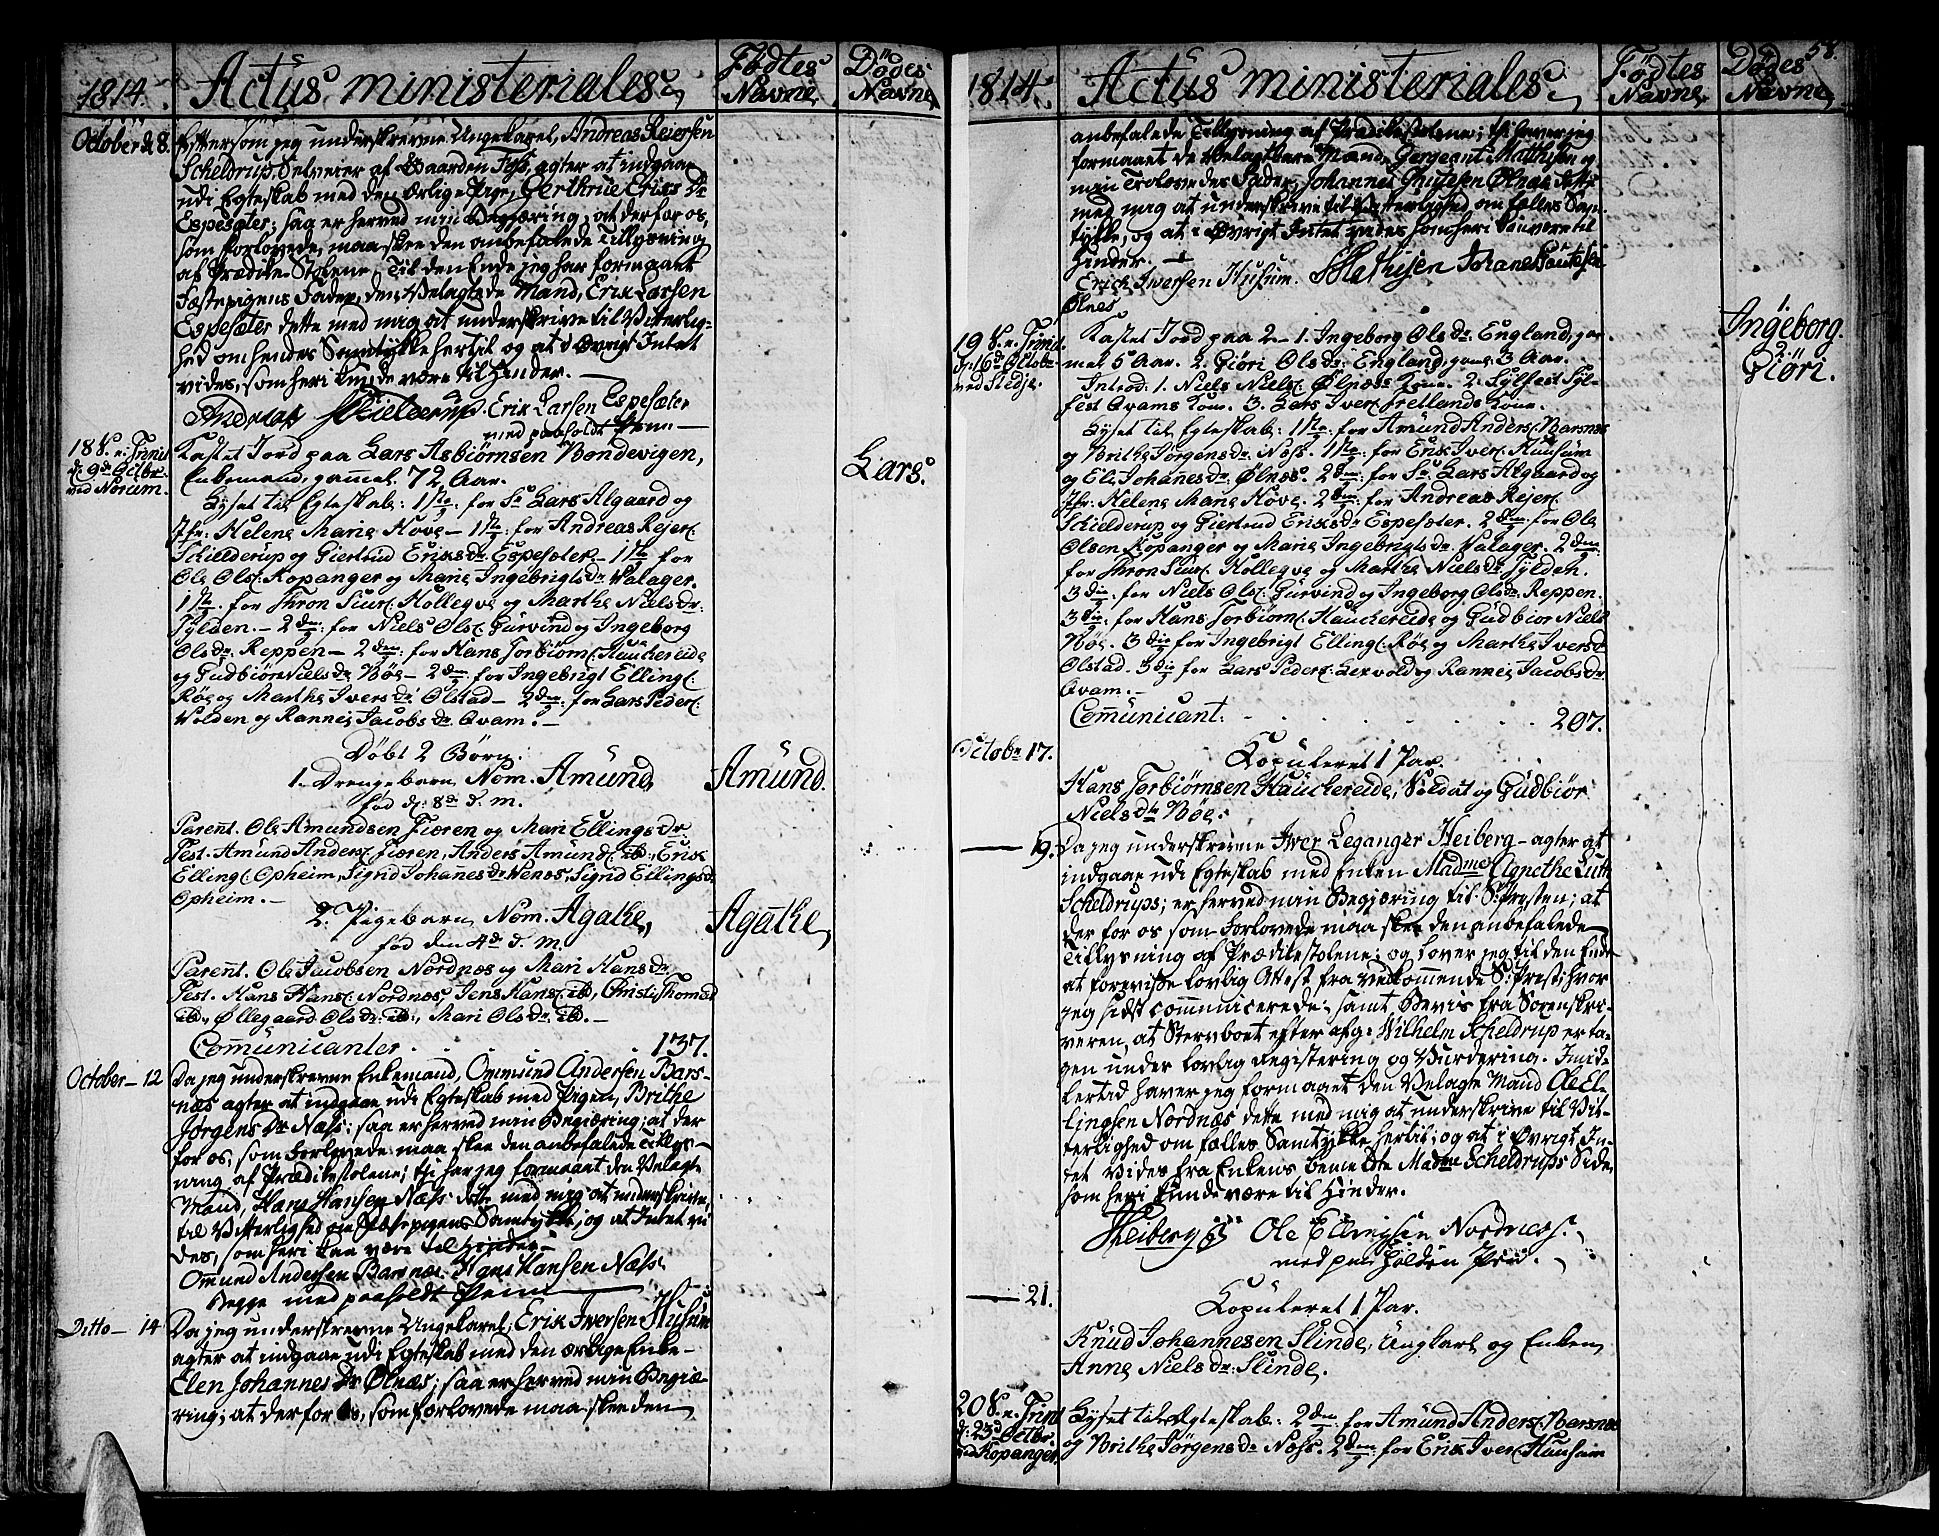 1814.
Actus ministeriales
Fødtes Navne
Dödes Navne
October d. 8.
Eftersom jeg underskrevne Ungekarel, Andreas Reiersen
Scheldrup, Selveier af Gaarden agter at indgaae
udi Egteskab med den ærlige Pige, Gerthrue Erics Dr
Espesæter; saa er herved min Begjæring, at der for os,
som forlovede, maa skee den anbefalede Tillysning
af Prædike-Stolene. Til den Ende jeg har formaaet
Fæstepigens Fader, den Velagtede Mand, Erik Larsen
Espesæter dette med mig at underskrive til Vitterlig-
hed om hendes Samtykke hertil og at i Øvrigt Intet
vides, som heri kunde være til Hinder.
Andreas Schielderup. Erik Larsen Espesæter
med paaholdt Penn
18 S. e. Trinit
d. 9de Octbr.
ved Norum.
Kastet Jord paa Lars Asbiörnsen Bondevigen,
Enkemand, gammel 72 Aar.
Lars.
Lyset til Egteskab: 1ste for Sr Lars Algaard og
Jfr: Helene Marie Hove – 1ste for Andreas Rejers:
Schielderup og Giertrud Eriks dr Espesæter – 1ste for
Ole Ols: Kopanger og Marie Ingebrigts dr Valager.
1ste for Thron Siur: Hollegve og Marthe Niels dr:
Sylden. – 2den: for Niels Ols: Gurvind og Ingeborg
Ols dr. Reppen – 2den: for Hans Torbiörn: Hauchereide
og Gudbiör Niels dr Böe – 2den for Ingebrigt Elling:
Röe og Marthe Ivers dr Olstad – 2den: for Lars Peder:
Volden og Rannei Jacobs dr Qvam. –
Döbt 2 Börn:
1. Drengebarn Nom. Amünd,
Amünd.
fød d. 8de d. M.
Parent. Ole Amundsen Fioren og Mari Ellings dr.
Test. Amünd Anders: Fioren, Anders Amünd: ib., Erik
Elling: Opheim, Sigrid Johanes dr Venes, Sigrid Ellings dr
Opheim. –
2. Pigebarn Nom. Agathe,
Agathe,
fød den 4de d. M.
Parent. Ole Jacobsen Nordnæs og Mari Hans dr.
Test. Hans Hans: Nordnæs, Jens Hans: ib, Christi Thomæ dr
ib., Øllegaard Ols dr: ib., Mari Ols dr ib. –
Communicanter . . . . 137.
October – 12
Da jeg underskrevne Enkemand, Ommund Andersen Bars-
næs agter at indgaae udi Egteskab med Pigen, Brithe
Jørgens Dr Næss: saa er herved min Begiæring; at der
for os, som Forlovede maa skee den anbefalede Tillys-
ning af Prædikestolene; thi har jeg formaaet den Velagte
Mand, Hans Hansen Næss dette med mig at underskrive,
til Vitterlighed om Fæstepigens Samtykke, og at Intet vi
des, som heri kan være til Hinder –
Omund Andersen Barsnæs Hans Hansen Næss.
Begge med paaholdt Penn
Ditto – 14
Da jeg underskrevne Ungekarel, Erik Iversen Husum
agter at indgaae udi Egteskab med den ærlige Enke –
Elen Johannes Dr Ølnæs; saa er herved min Begiæ-
ring; at der for os, som forlovede maa skee den
58.
1814.
Actus ministeriales
Födtes Navne
Dödes Navne
anbefalede Tillysning af Prædikestolene; thi haver jeg
formaaet de Velagtbare Mænd, Sergeant Mathisen og
min Trolovedes Fader, Johannes Ølnæs dette
med mig at underskrive til Vitterlighed om fælles Sam-
tykke, og at i Øvrigt Intet vides som heri kan være til
Hinder. –
Erich Iversen Husum. Mathisen
Ølnes
19 S. e. Trinit.
d. 16de Octobr
ved Stedje.
Kastet Jord paa 2 – 1. Ingeborg Ols dr. England, gam-
mel 5 Aar. 2. Giöri Ols dr: England, gaml. 3 Aar.
1
Ingeborg.
2.
Giöri.
Introd: 1. Niels Niels: Ølnæs Kone. 2. Sylfest Syl-
fest: Qvams Kone. 3. Lars Iver: Fretlands Kone.
Lyset til Egteskab: 1ste for Amünd Anders: Barsnes
og Brithe Jørgens dr. Næss. 1ste: for Erik Iver: Huusum
og Eli Johanes dr: Ølnæs. 2den: for Sr Lars Algaard og
Jfr: Helene Marie Hove. 2den: for Andreas Rejer:
Schielderup og Giertrud Eriks dr Espesæter. 2den: for Ole
Olsen Kopanger og Marie Ingebrigts dr. Valager. 2den:
for Thron Siur: Hollegve og Marthe Niels dr Sylden.
3die: for Niels Ols: Gurvind og Ingeborg Ols dr. Reppen.
3die: for Hans Torbiörn: Hauchereide og Gudbiör Niels
Böe. 3die for Ingebrigt Elling: Röe og Marthe Ivers d
Olstad. 3die for Lars Peder: Lervold og Rannei Jacobs dr
Qvam. –
Communicant: . . . . 207.
Octobr 17.
Kopuleret 1 Par.
Hans Torbiörnsen Hauchereide, Soldat og Gudbiör
Niels dtr Böe.
— 19.
Da jeg underskrevne Iver Leganger Heiberg – agter at
indgaae udi Egteskab med Enken Madme Agnethe Luth
Scheldrups; er herved min Begjæring til S: Presten; at
der for os som Forlovede maa skee den anbefalede
Tillysning af Prædikestolene; og lover jeg til den Ende
at forevise lovlig Attest fra vedkommende S: Prest; hvor
jeg sidst communicerede; samt Bevis fra Sorenskri-
veren, at Stervboet efter afg: Wilhelm Scheldrup er ta-
gen under lovlig Registering og Vurdering. Imid-
lertid haver jeg formaaet den Velagte Mand Ole El-
lingsen Nordnæs dette med mig at underskrive til Vit-
terlighed om fælles Samtykke hertil; og at i Øvrigt In-
tet Vides fra Enkens bemeldte Madme Scheldrups Side,
som heri kunde være til Hinder.
Heiberg Ole Ellingsen Nordnæs.
med paaholden Pen.
— 21.
Kopuleret 1 Par.
Knud Johannesen Slinde, Ungkarl og Enken,
Anne Niels dr: Slinde.
20 S. e. Trinit
d. 23d Octbr.
ved Kopanger.
Lyset til Egteskab: 2den for Amünd Anders: Barsnes
og Brithe Jørgens dr Næss. 2den: for Erik Iver: Huusum